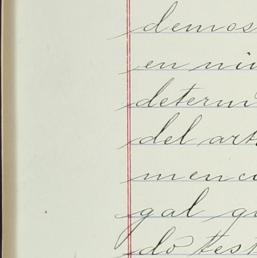 demos
en nin
determi
del art
menci
gal qu
do test